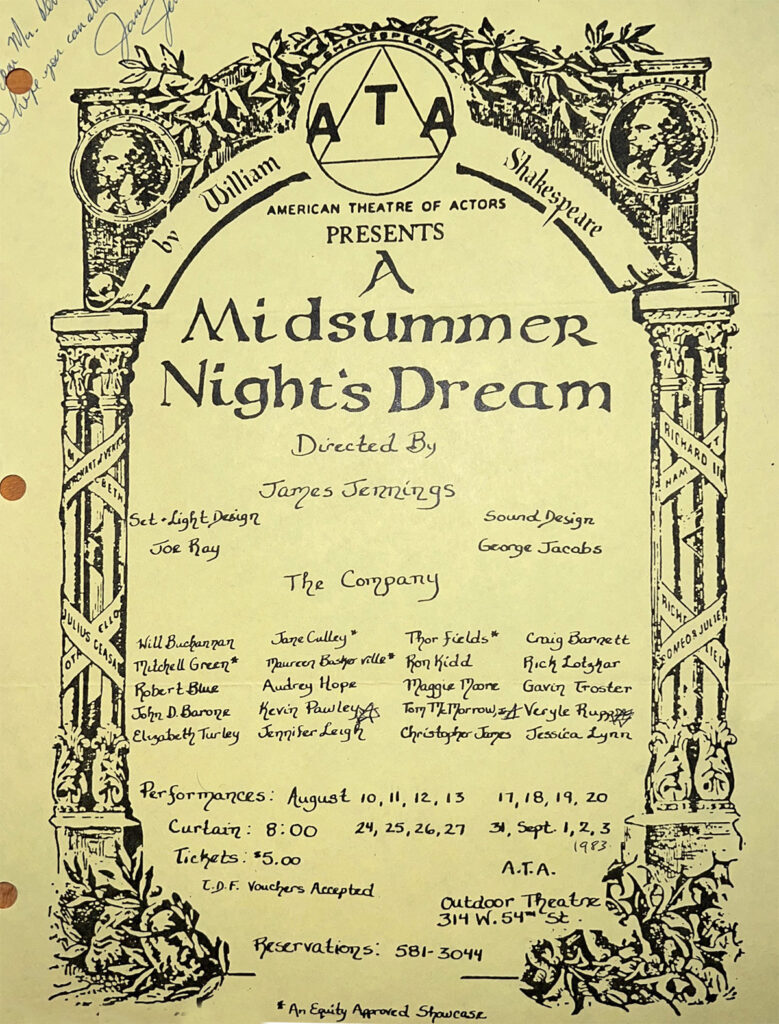 I hope you can
SHAKESPEARE
ATA
by William Shakespeare
AMERICAN THEATRE OF ACTORS
PRESENTS
A
Midsummer
Night's Dream
Directed By
James Jennings
Set + Light Design
Joe Ray
Sound Design
George Jacobs
The Company
Will Buchannan Jane Culley* Thor Fields* Craig Barnett
Mitchell Green* Maureen Baskerville* Ron Kidd Rick Lotzkar
Robert Blue Audrey Hope Maggie Moore Gavin Troster
John D. Barone Kevin Pawley Tom McMorrow, Veryle Rupp
Elizabeth Turley Jennifer Leigh Christopher James Jessica Lynn
RICHARD II
HAM
JULIUS CEASA
OTH ELLO
ROMEO & JULIET
Performances: August 10, 11, 12, 13 17, 18, 19, 20
Curtain: 8:00 24, 25, 26, 27 31, Sept. 1, 2, 3
1983
Tickets: $5.00
T.D.F. Vouchers Accepted
A.T.A.
Outdoor Theatre
314 W. 54th St.
Reservations: 581-3044
* An Equity Approved Showcase